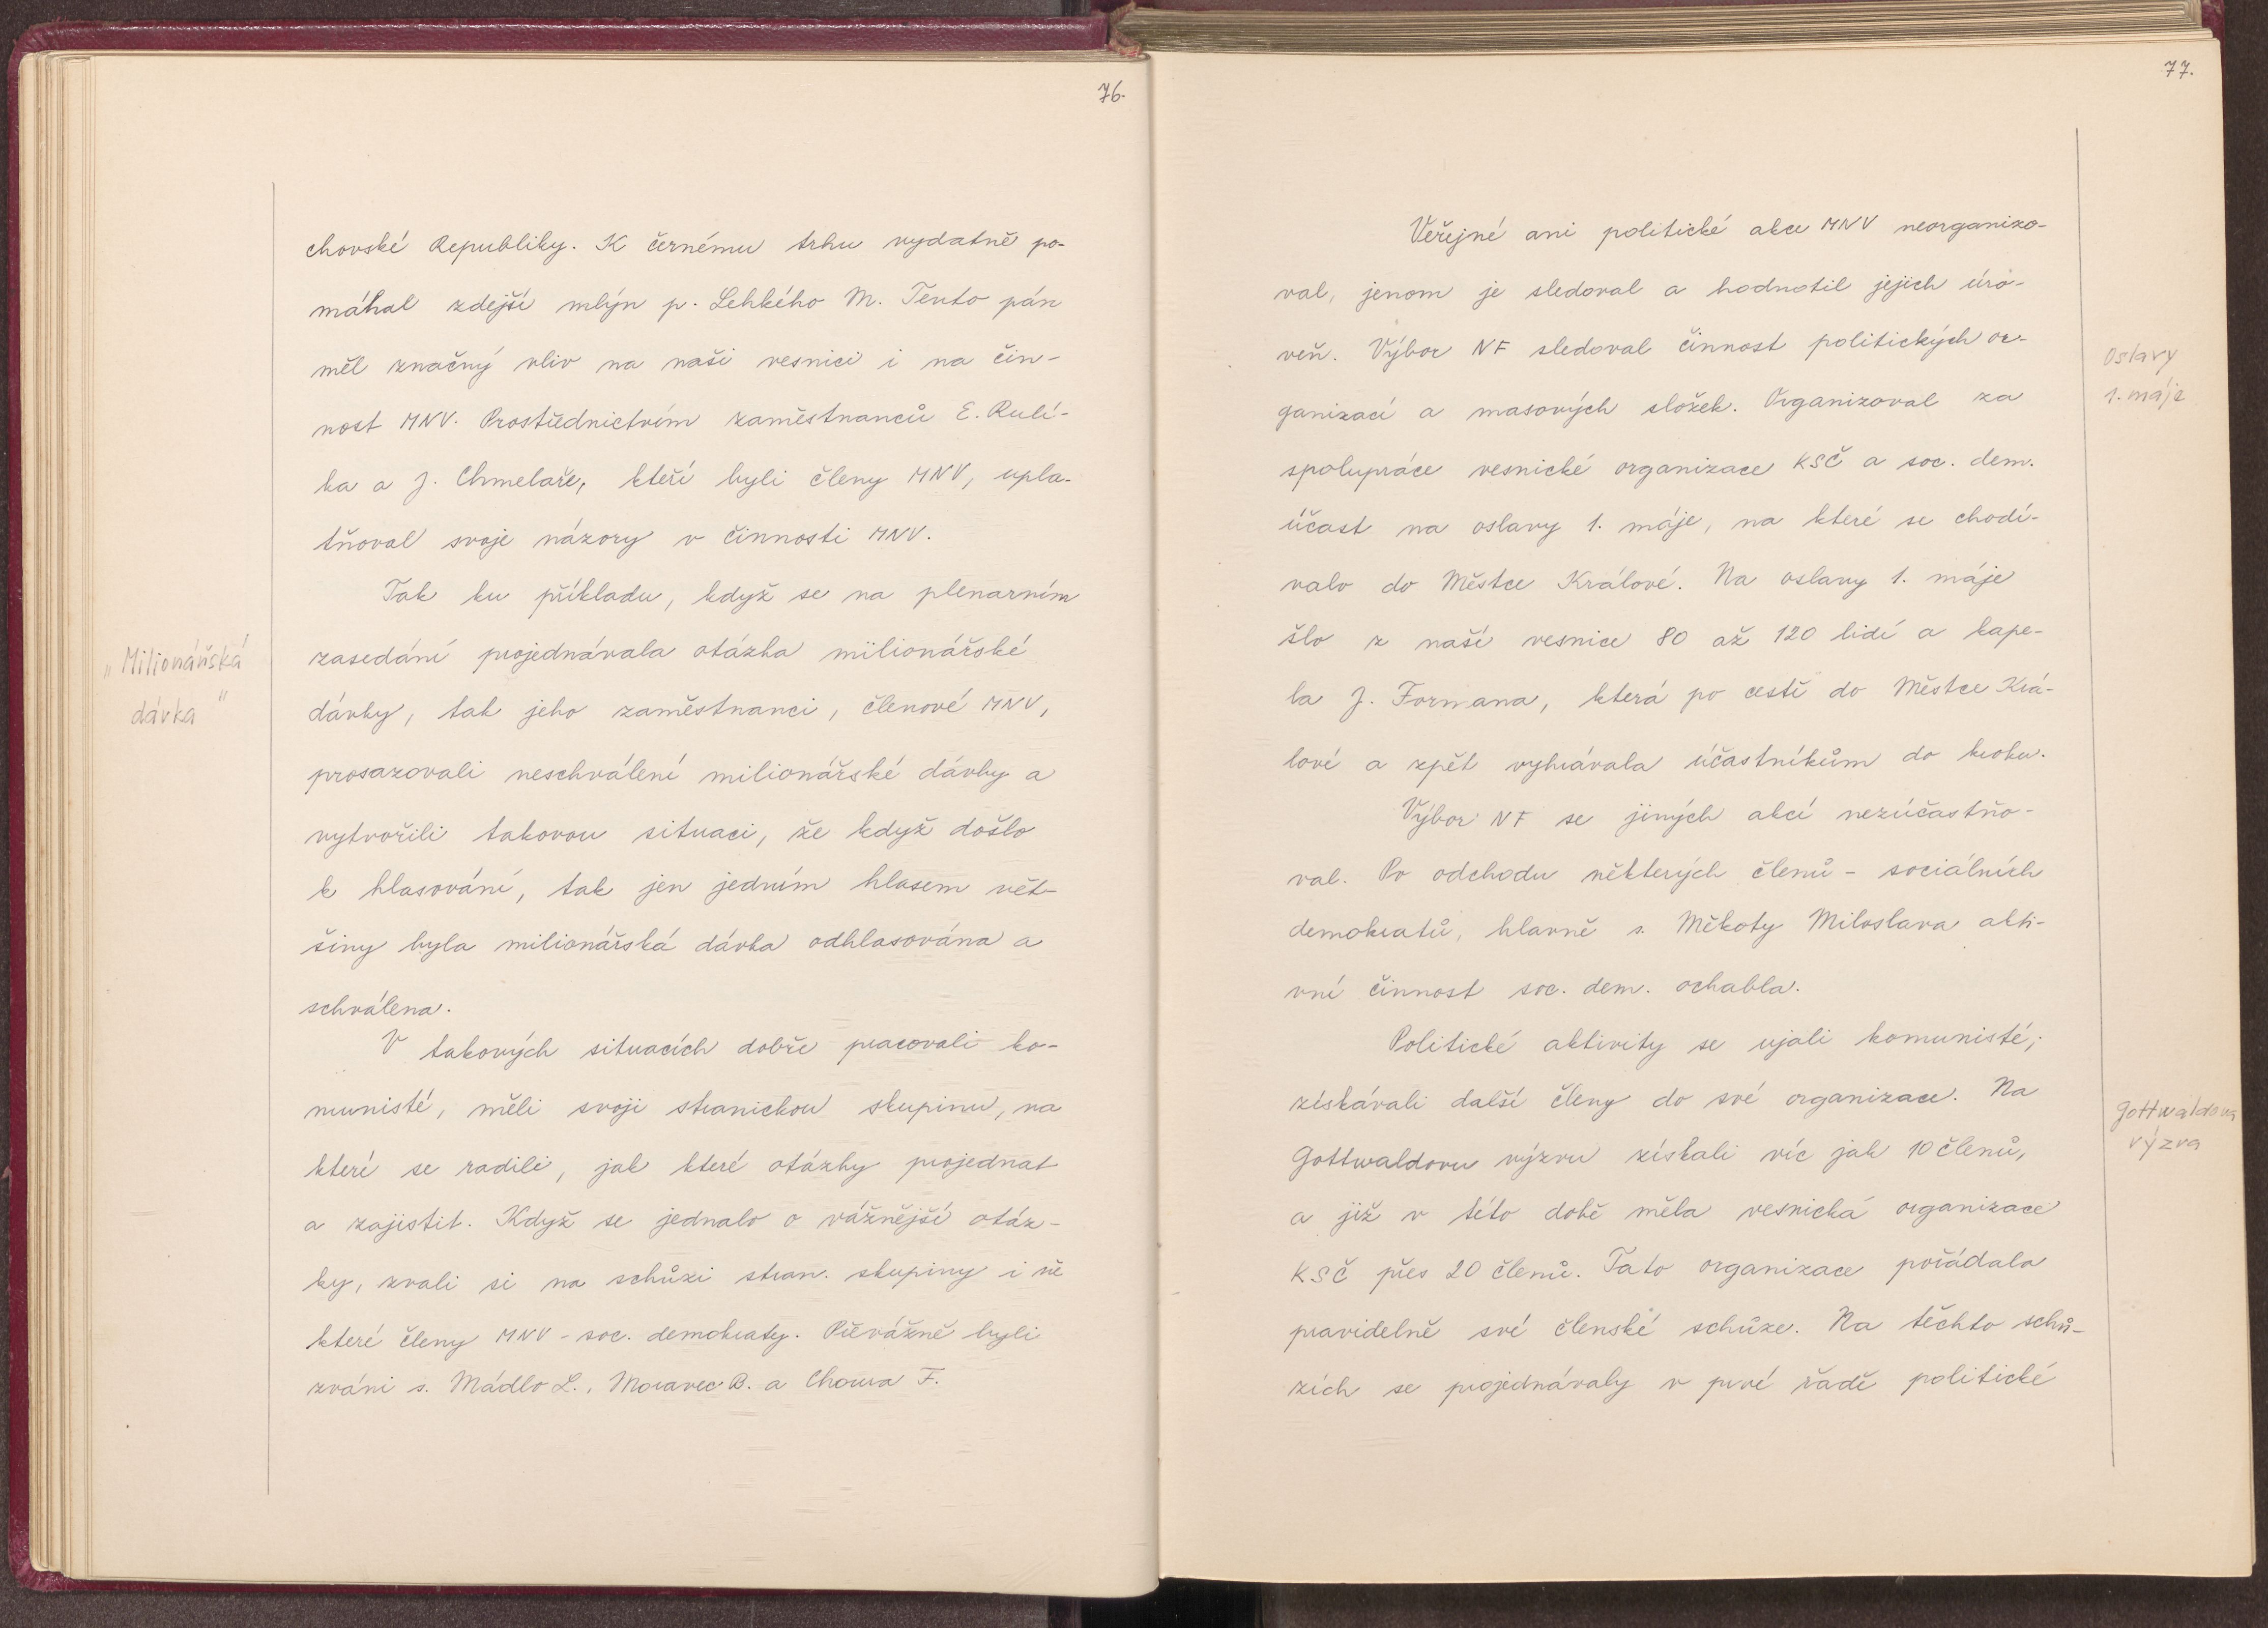 76.
chovské Republiky. K černému trhu vydatně po-
máhal zdejší mlýn p. Lehkého M. Tento pán
měl značný vliv na naši vesnici i na čin-
nost MNV. Prostřednictvím zaměstnanců E. Rulí-
ka a J. Chmelaře, kteří byli členy MNV, upla-
tňoval svoje názory v činnosti MNV.
Tak ku příkladu, když se na plenarním
zasedání projednávala otázka milionářské
dávky, tak jeho zaměstnanci, členové MNV,
prosazovali neschválení milionářské dávky a
vytvořili takovou situaci, že když došlo
k hlasování, tak jen jedním hlasem vět-
šiny byla milionářská dávka odhlasována a
schválena.
V takových situacích dobře pracovali ko-
munisté, měli svoji stranickou skupinu, na
které se radili, jak které otázky projednat
a zajistit. Když se jednalo o vážnější otáz-
ky, zvali si na schůzi stran. skupiny i ně
které členy MNV - soc. demokraty. Převážně byli
zváni s. Mádlo L., Moravec B. a Choura F.
"Milionářská
dávka"
77.
Veřejné ani politické akce MNV neorganizo-
val, jenom je sledoval a hodnotil jejich úro-
veň. Výbor NF sledoval činnost politických or-
ganizací a masových složek. Organizoval za
spolupráce vesnické organizace KSČ a soc. dem.
účast na oslavy 1. máje, na které se chodí-
valo do Městce Králové. Na oslavy 1. máje
šlo z naší vesnice 80 až 120 lidí a kape-
la J. Formana, která po cestě do Městce Krá-
lové a zpět vyhrávala účastníkům do kroku.
Výbor NF se jiných akcí nezúčastňo-
val. Po odchodu některých členů - sociálních
demokratů, hlavně s. Měkoty Miloslava akti-
vní činnost soc. dem. ochabla.
Politické aktivity se ujali komunisté;
získávali další členy do své organizace. Na
Gottwaldovu výzvu získali víc jak 10 členů,
a již v této době měla vesnická organizace
KSČ přes 20 členů. Tato organizace pořádala
pravidelně své členské schůze. Na těchto schů-
zích se projednávaly v prvé řadě politické
Oslavy
1. máje
Gottwaldova
výzva